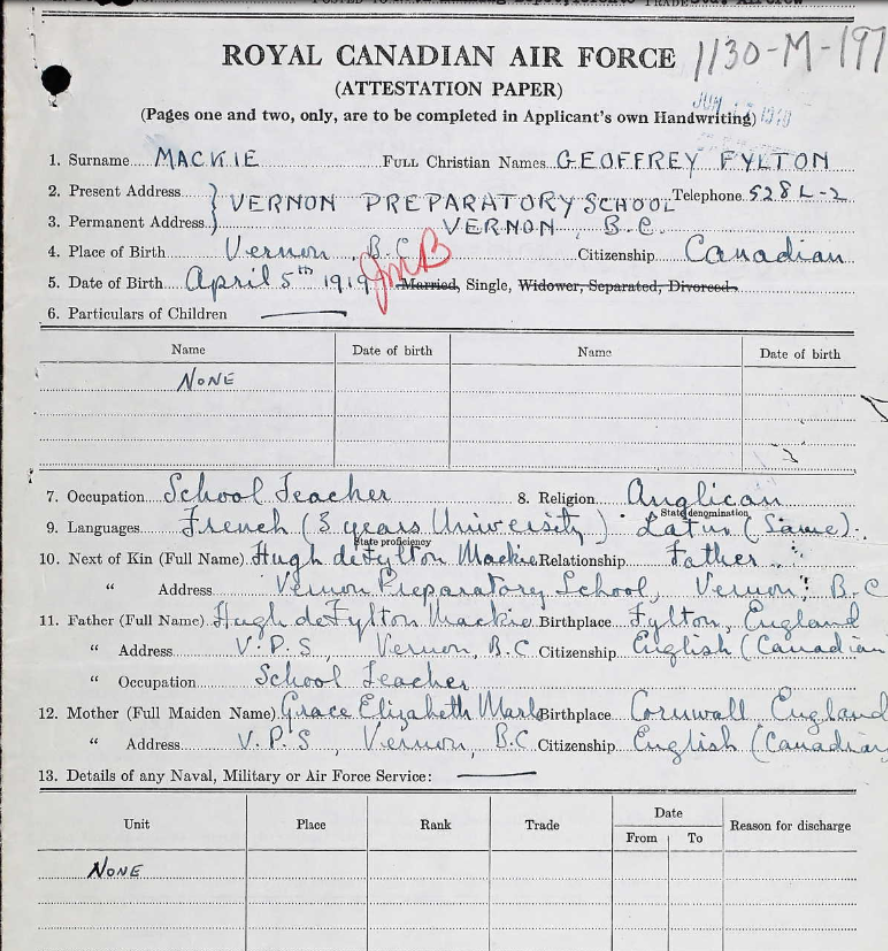 ROYAL CANADIAN AIR FORCE 1130-M-197
(ATTESTATION PAPER)
(Pages one and two, only, are to be completed in Applicant's own Handwriting)
1. Surname MACKIE FULL Christian Names GEOFFREY FYLTON
2. Present Address VERNON PREPARATORY SCHOOL Telephone 528 L-2
3. Permanent Address VERNON, B.C.
4. Place of Birth Vernon, B.C Citizenship Canadian
5. Date of Birth April 5th 1919 Married, Single, Widower, Separated, Divorced
6. Particulars of Children
Name Date of birth Name Date of birth
NONE
7. Occupation School Teacher 8. Religion Anglican
State denomination
9. Languages French (3 years University) Latin (Same).
State proficiency
10. Next of Kin (Full Name) Hugh deFylton Mackie Relationship Father
" Address Vernon Preparatory School, Vernon, B.C
11. Father (Full Name) Hugh deFylton Mackie Birthplace Fylton, England
" Address V.P.S, Vernon, B.C Citizenship English (Canadian
" Occupation School Teacher
12. Mother (Full Maiden Name) Grace Elizabeth Birthplace Cornwall England
" Address V.P.S, Vernon, B.C Citizenship English (Canadian
13. Details of any Naval, Military or Air Force Service:
Unit Place Rank Trade Date Reason for discharge
From To
NONE